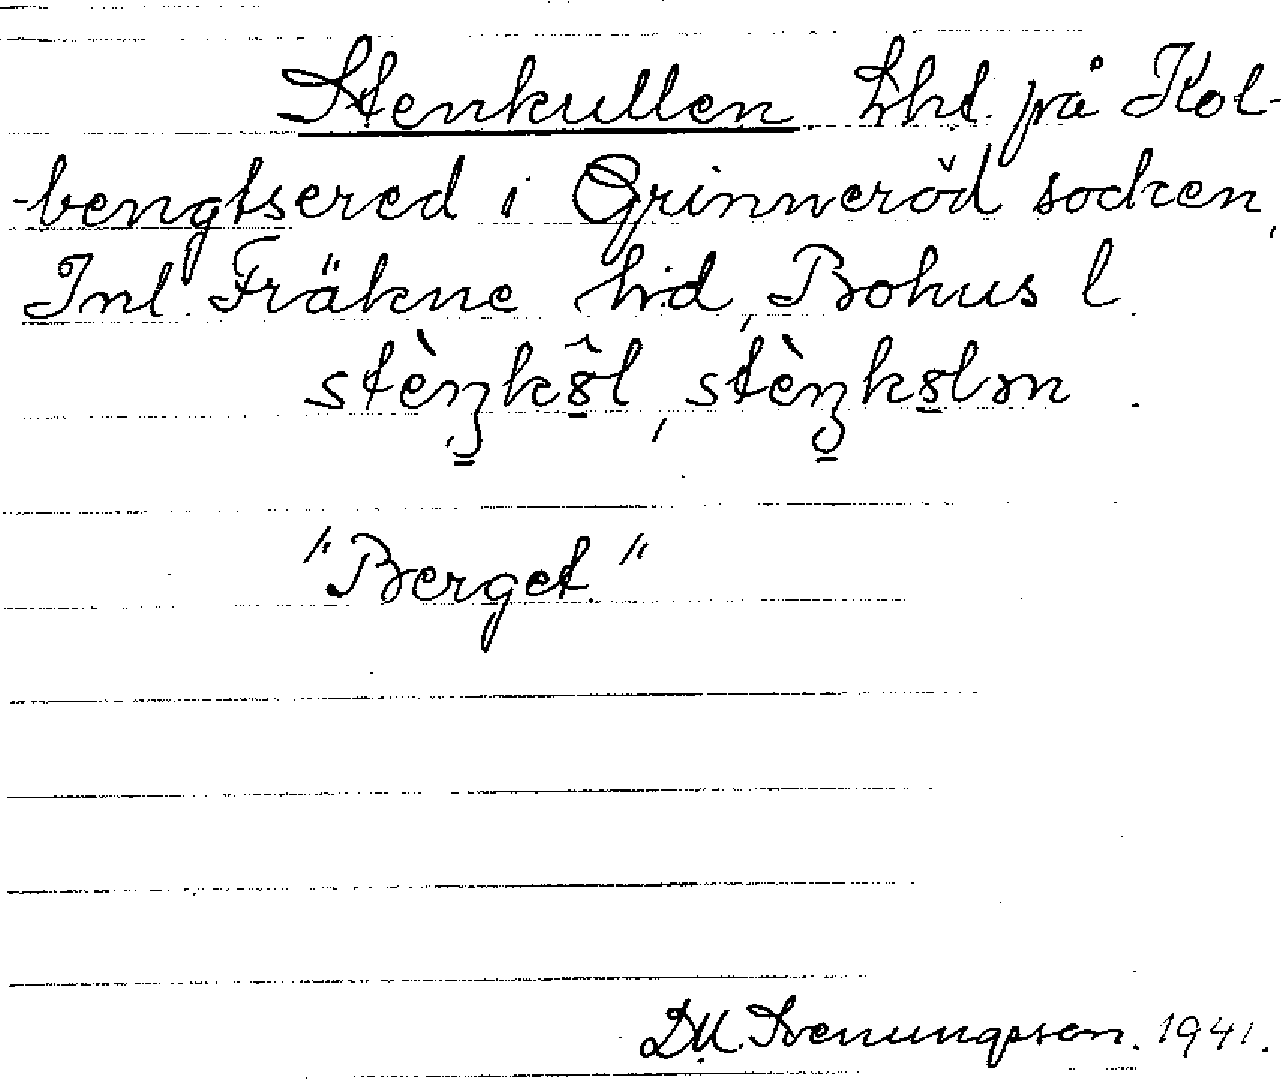 Stenkullen Lht. på Kol-
-bengtsered i Grinneröd socken,
Inl. Fräkne hd, Bohus l.
"Berget."
D.M. Svenungsson. 1941.